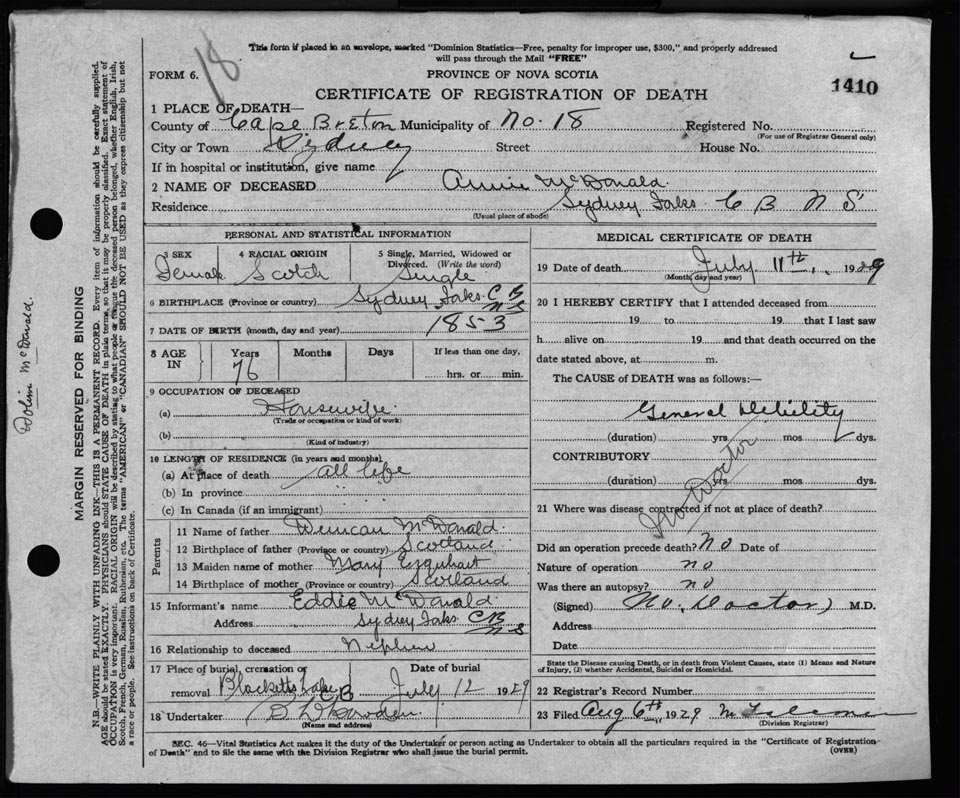 This form if placed in an envelope, marked "Dominion Statistics—Free, penalty for improper use, $300," and properly addressed
will pass through the Mail "FREE"
18
FORM 6.
PROVINCE OF NOVA SCOTIA
1410
CERTIFICATE OF REGISTRATION OF DEATH
1 PLACE OF DEATH—
County of Cape Breton Municipality of No. 18 Registered No.
(For use of Registrar General only)
City or Town Sydney Street House No.
If in hospital or institution, give name
2 NAME OF DECEASED Annie McDonald
Residence Sydney Faks C B N S
(Usual place of abode)
PERSONAL AND STATISTICAL INFORMATION
3 SEX Female
4 RACIAL ORIGIN Scotch
5 Single, Married, Widowed or Divorced. (Write the word) Single
6 BIRTHPLACE (Province or country) Sydney Faks. C B N S
7 DATE OF BIRTH (month, day and year) 1853
8 AGE IN Years 76 Months Days If less than one day, hrs. or min.
9 OCCUPATION OF DECEASED
(a) Housewife
(Trade or occupation or kind of work)
(b)
(Kind of industry)
10 LENGTH OF RESIDENCE (in years and months)
(a) At place of death all life
(b) In province
(c) In Canada (if an immigrant)
Parents
11 Name of father Duncan McDonald
12 Birthplace of father (Province or country) Scotland
13 Maiden name of mother Mary Erquhart
14 Birthplace of mother (Province or country) Scotland
15 Informant's name Eddie McDonald
Address Sydney Faks C B N S
16 Relationship to deceased Nephew
17 Place of burial, cremation or removal Blacketts Lake C B
Date of burial July 12 1929
18 Undertaker
(Name and address)
MEDICAL CERTIFICATE OF DEATH
19 Date of death July 11th, 1929
(Month, day and year)
20 I HEREBY CERTIFY that I attended deceased from
19 to 19 that I last saw
h alive on 19 and that death occurred on the
date stated above, at m.
The CAUSE of DEATH was as follows:—
General Debility
(duration) yrs. mos dys.
CONTRIBUTORY
(duration) yrs mos dys.
No Doctor
21 Where was disease contracted if not at place of death?
Did an operation precede death? No Date of
Nature of operation no
Was there an autopsy? no
(Signed) No. Doctor M.D.
Address
Date
State the Disease causing Death, or in death from Violent Causes, state (1) Means and Nature
of Injury, (2) whether Accidental, Suicidal or Homicidal.
22 Registrar's Record Number
23 Filed Aug 6th 1929
(Division Registrar)
SEC. 46—Vital Statistics Act makes it the duty of the Undertaker or person acting as Undertaker to obtain all the particulars required in the "Certificate of Registration
of Death" and to file the same with the Division Registrar who shall issue the burial permit.
(OVER)
McDonald.
MARGIN RESERVED FOR BINDING
N.B.—WRITE PLAINLY WITH UNFADING INK—THIS IS A PERMANENT RECORD. Every item of information should be carefully supplied.
AGE should be stated EXACTLY. PHYSICIANS should STATE CAUSE OF DEATH in plain terms, so that it may be properly classified. Exact statement of
OCCUPATION is very important. RACIAL ORIGIN will be described by stating to what people or race the deceased person belonged, whether English, Irish,
Scotch, French, German, Russian, Ruthenian, etc. The terms "AMERICAN" or "CANADIAN" SHOULD NOT BE USED as they express citizenship but not
a race or people. See instructions on back of Certificate.